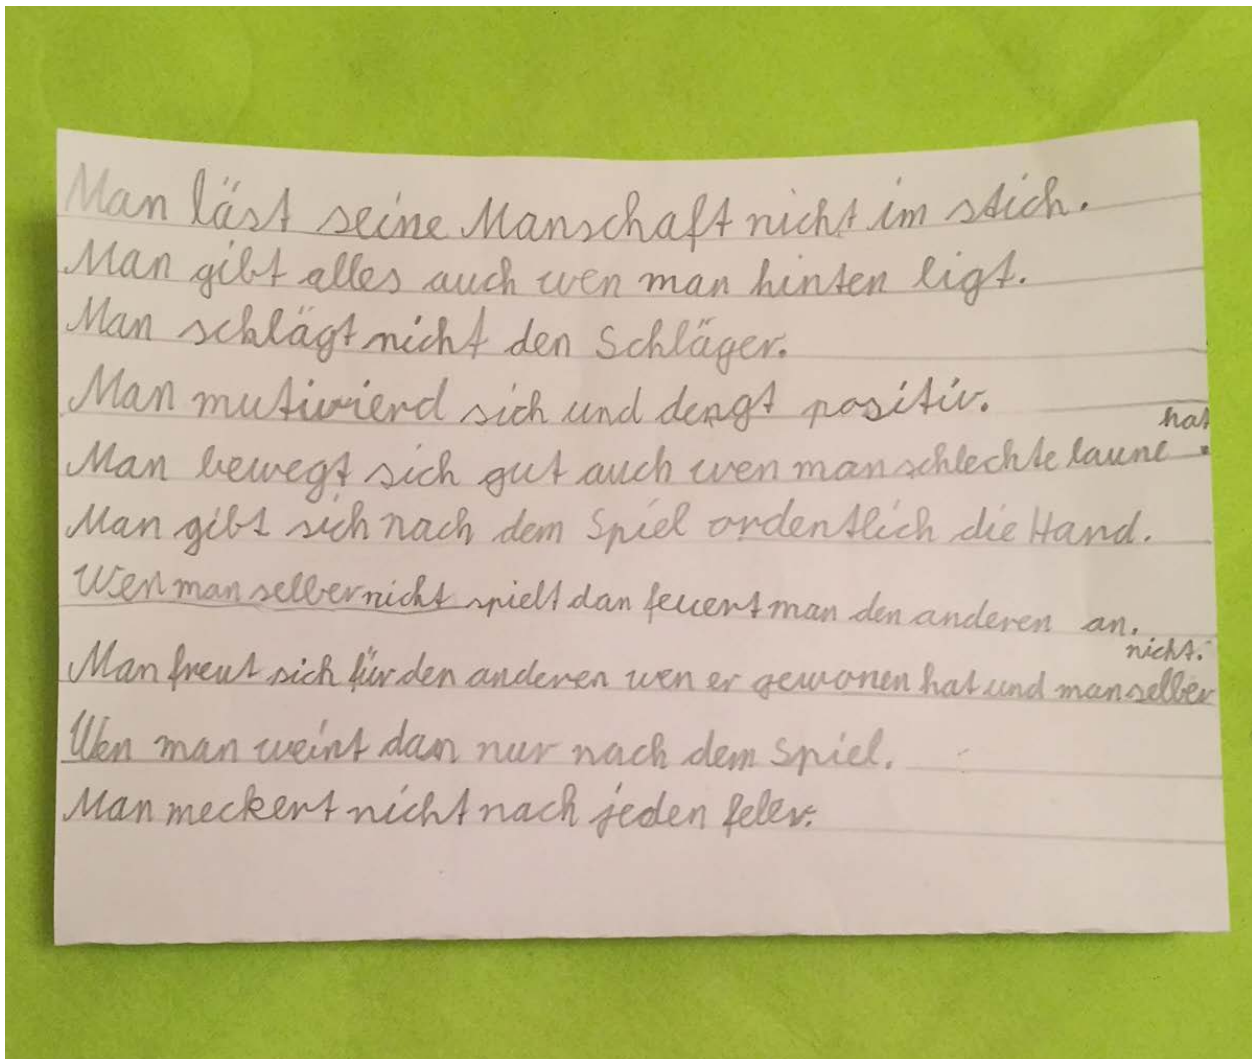 Man läst seine Manschaft nicht im stich.
Man gibt alles auch wen man hinten ligt.
Man schlägt nicht den Schläger.
Man mutivierd sich und dengt positiv.
Man bewegt sich gut auch wen man schlechte laune hat.
Man gibt sich nach dem Spiel ordentlich die Hand.
Wen man selber nicht spielt dan feuert man den anderen an.
Man freut sich für den anderen wen er gewonen hat und man selber nicht.
Wen man weint dan nur nach dem Spiel.
Man meckert nicht nach jeden feler.